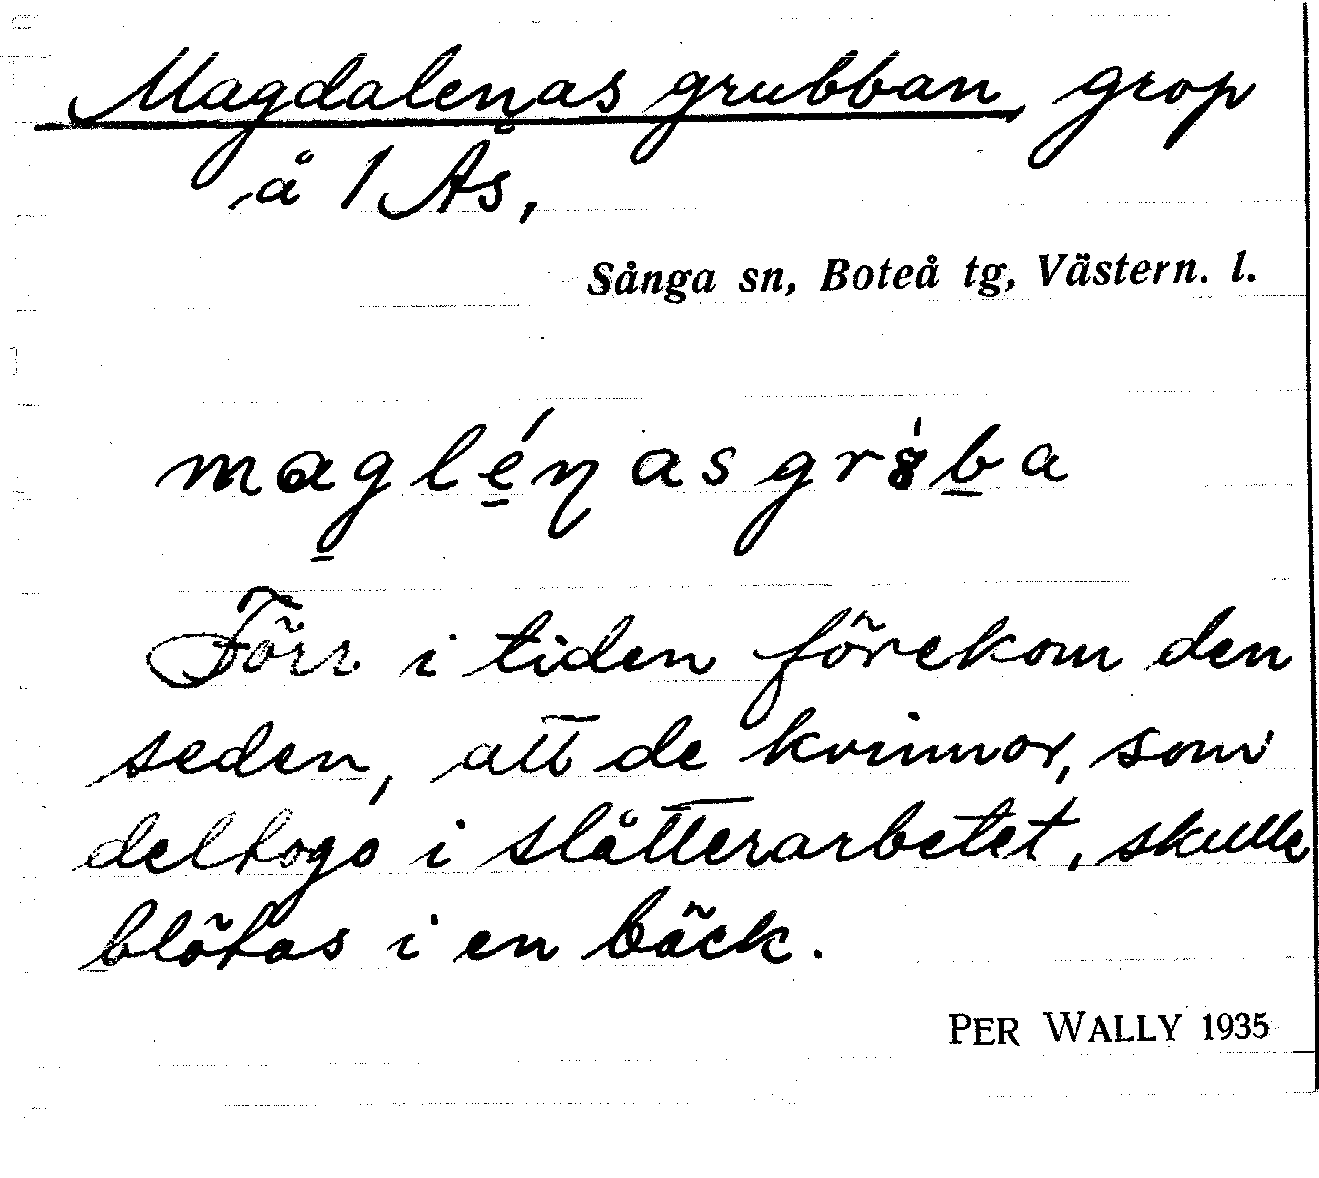 Magdalenas grubban, grop
å 1 Ås,
Sånga sn, Boteå tg, Västern. l.
maglénasgrȣ́ba
Förr i tiden förekom den
seden, att de kvinnor, som
deltogo i slåtterarbetet, skulle
blötas i en bäck.
PER WALLY 1935